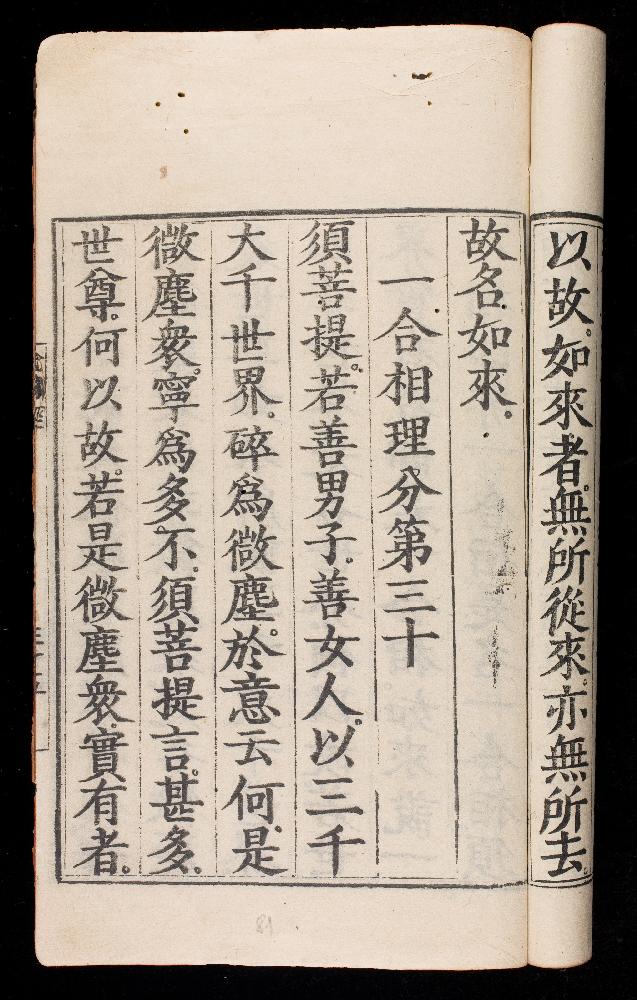 以故。如來者。無所從來。亦無所去。
故名如來。
一合相理分第三十
須菩提。若善男子。善女人。以三千
大千世界。碎為微塵。於意云何。是
微塵衆。寧為多不。須菩提言。甚多。
世尊。何以故。若是微塵衆。實有者。
81